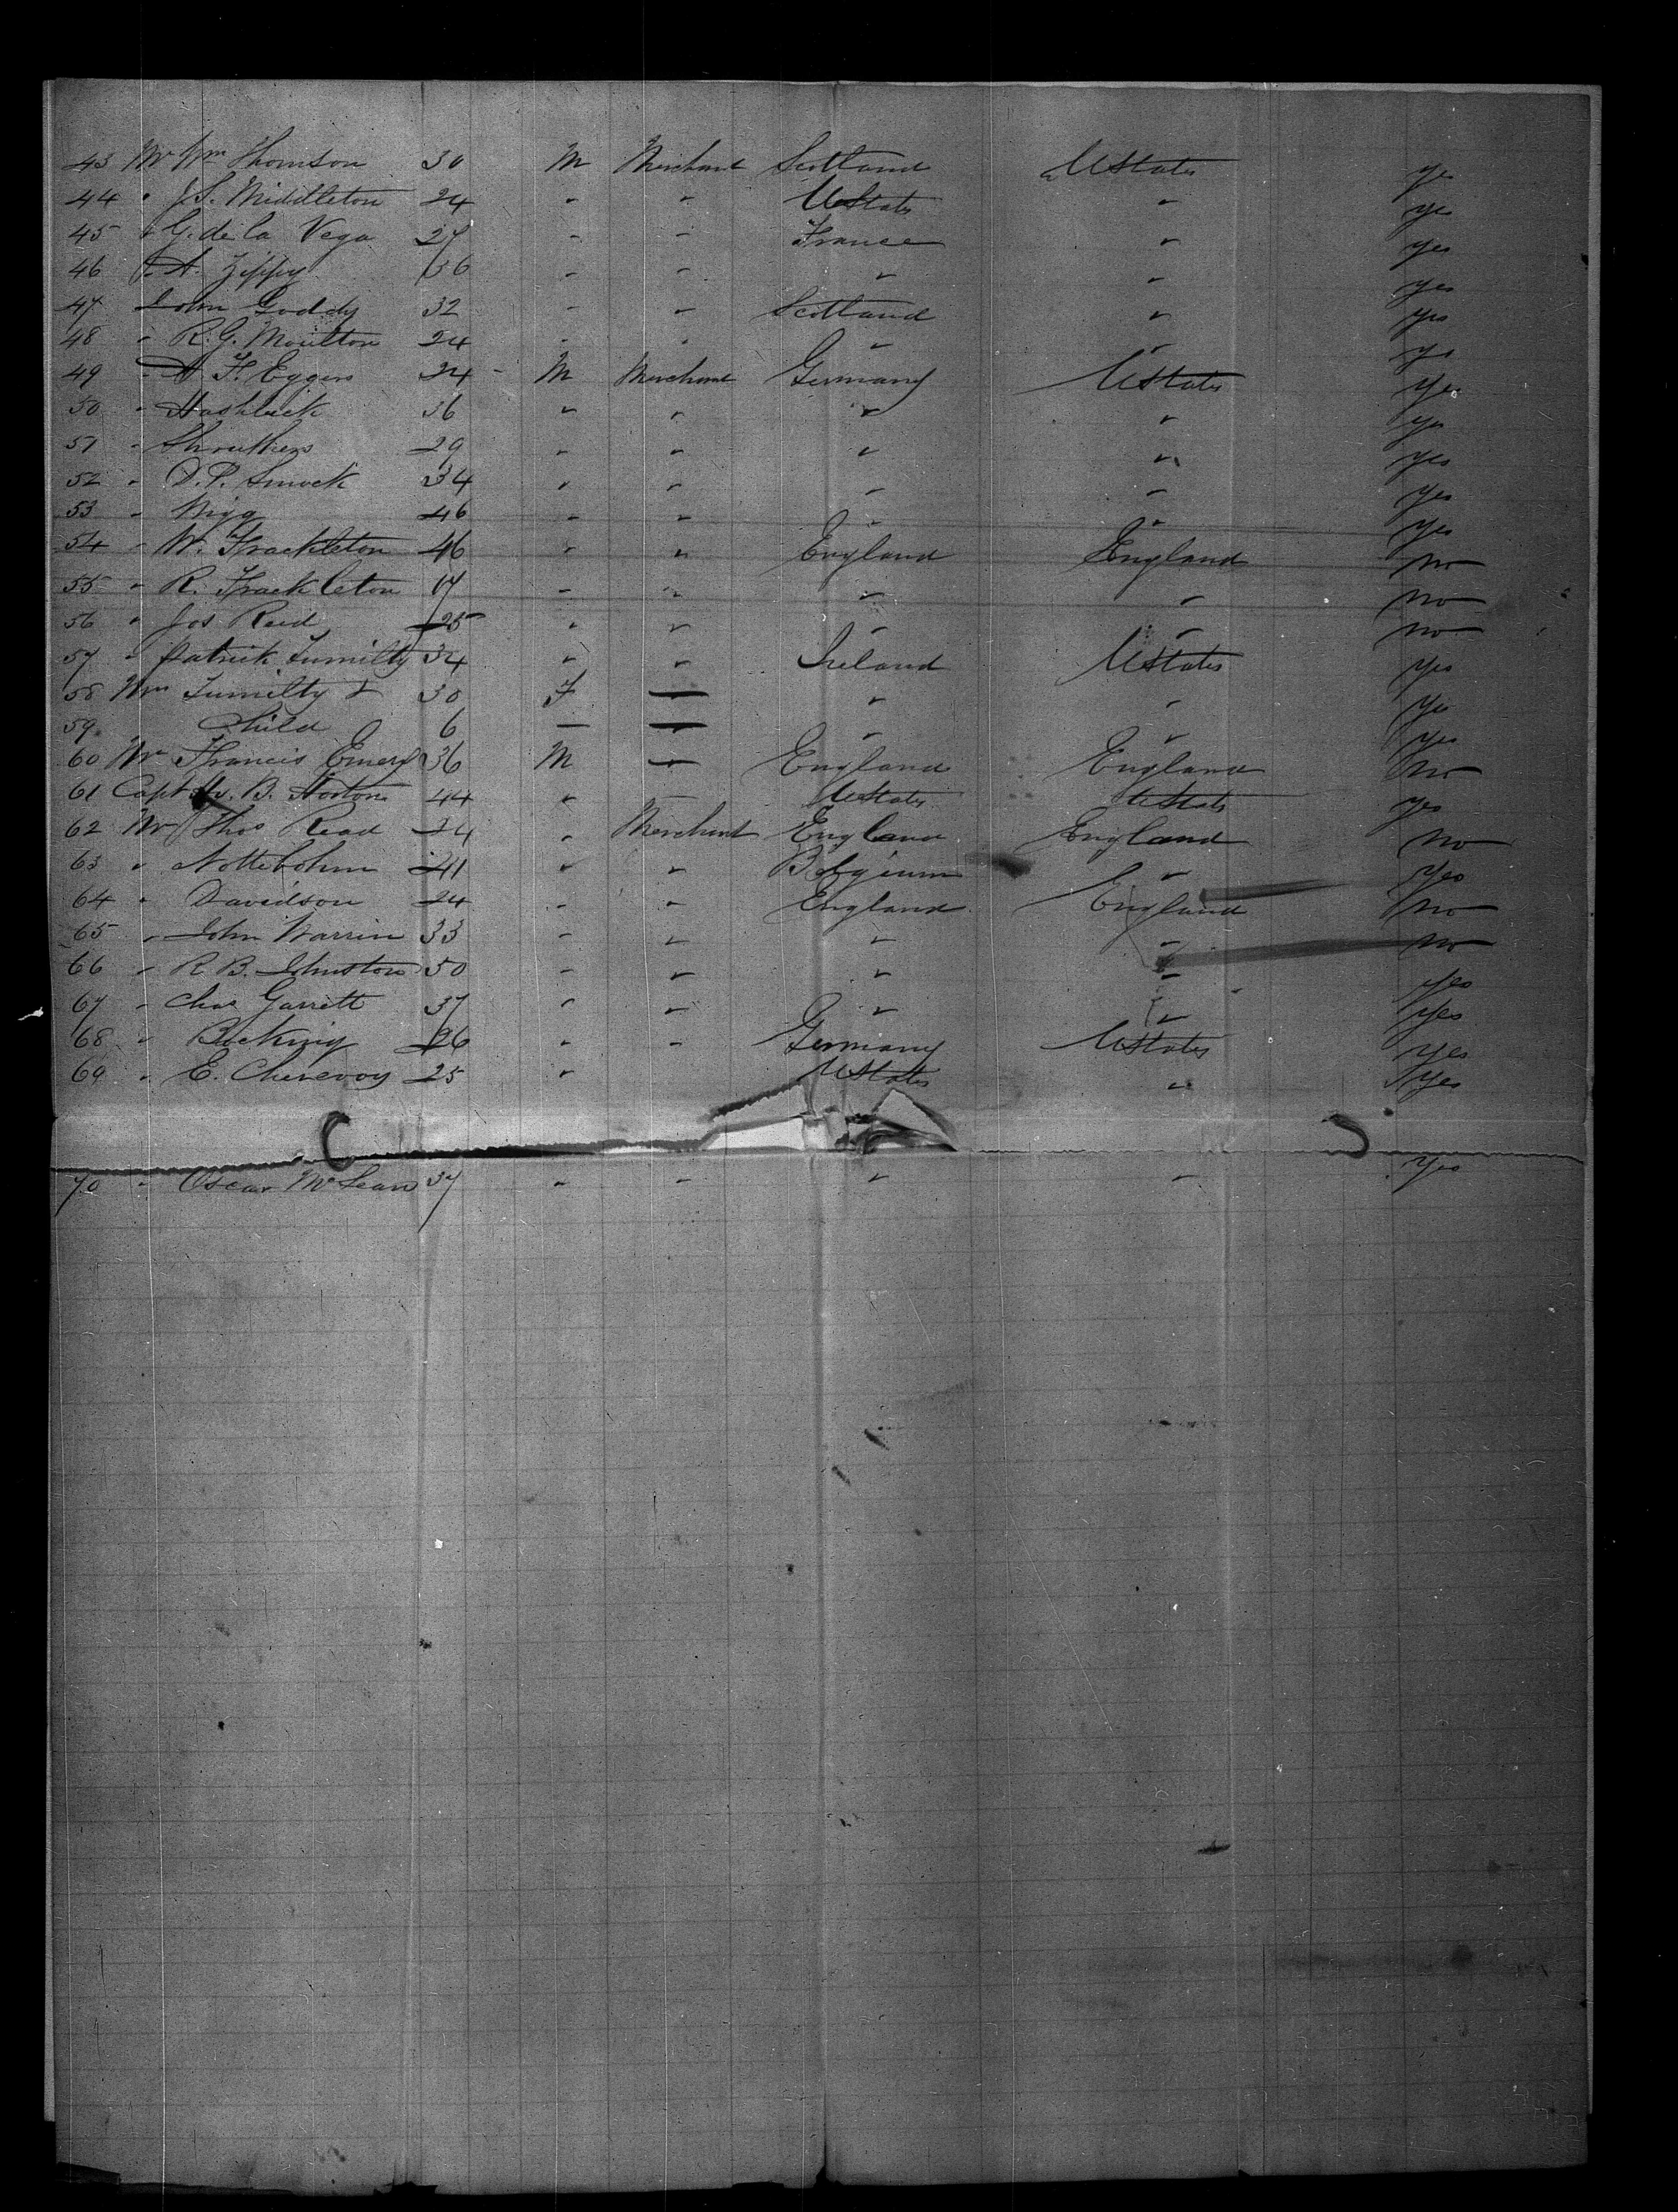 43 Mr Wm Thomson 30 M Merchant Scotland UStates yes
44 " J.S. Middleton 24 " " UStates " yes
45 " G. de la Vega 27 " " France " yes
46 " A. Zippy 36 " " " " yes
47 John Goddy 32 " " Scotland " yes
48 " R.G. Moulton 24 " " " " yes
49 " A F. Eggers 24 M Merchant Germany UStates yes
50 " Hashluck 36 " " " " yes
51 " Struthers 29 " " " " yes
52 " D.P. Smock 34 " " " " yes
53 " Nigg 46 " " " " yes
54 " W. Frackleton 46 " " England England no
55 " R. Frackleton 17 " " " " no
56 " Jos Reid 25 " " " " no
57 " Patrick Tumilty 34 " " Ireland UStates yes
58 Mrs Tumilty & 30 F — " " yes
59 Child 6 — — " " yes
60 Mr Francis Emery 36 M — England England no
61 Capt B. Norton 44 " — UStates UStates yes
62 Mr Thos Read 24 " Merchant England England no
63 " Nottebohm 41 " " Belgium " yes
64 " Davidson 24 " " England England no
65 " John Warrin 33 " " " " no
66 " R B. Johnston 50 " " " " yes
67 " Chas Garrett 37 " " " " yes
68 " Bocking 26 " " Germany UStates yes
69 " E. Cherevoy 25 " UStates " yes
70 " Oscar McLean 37 " " " " yes